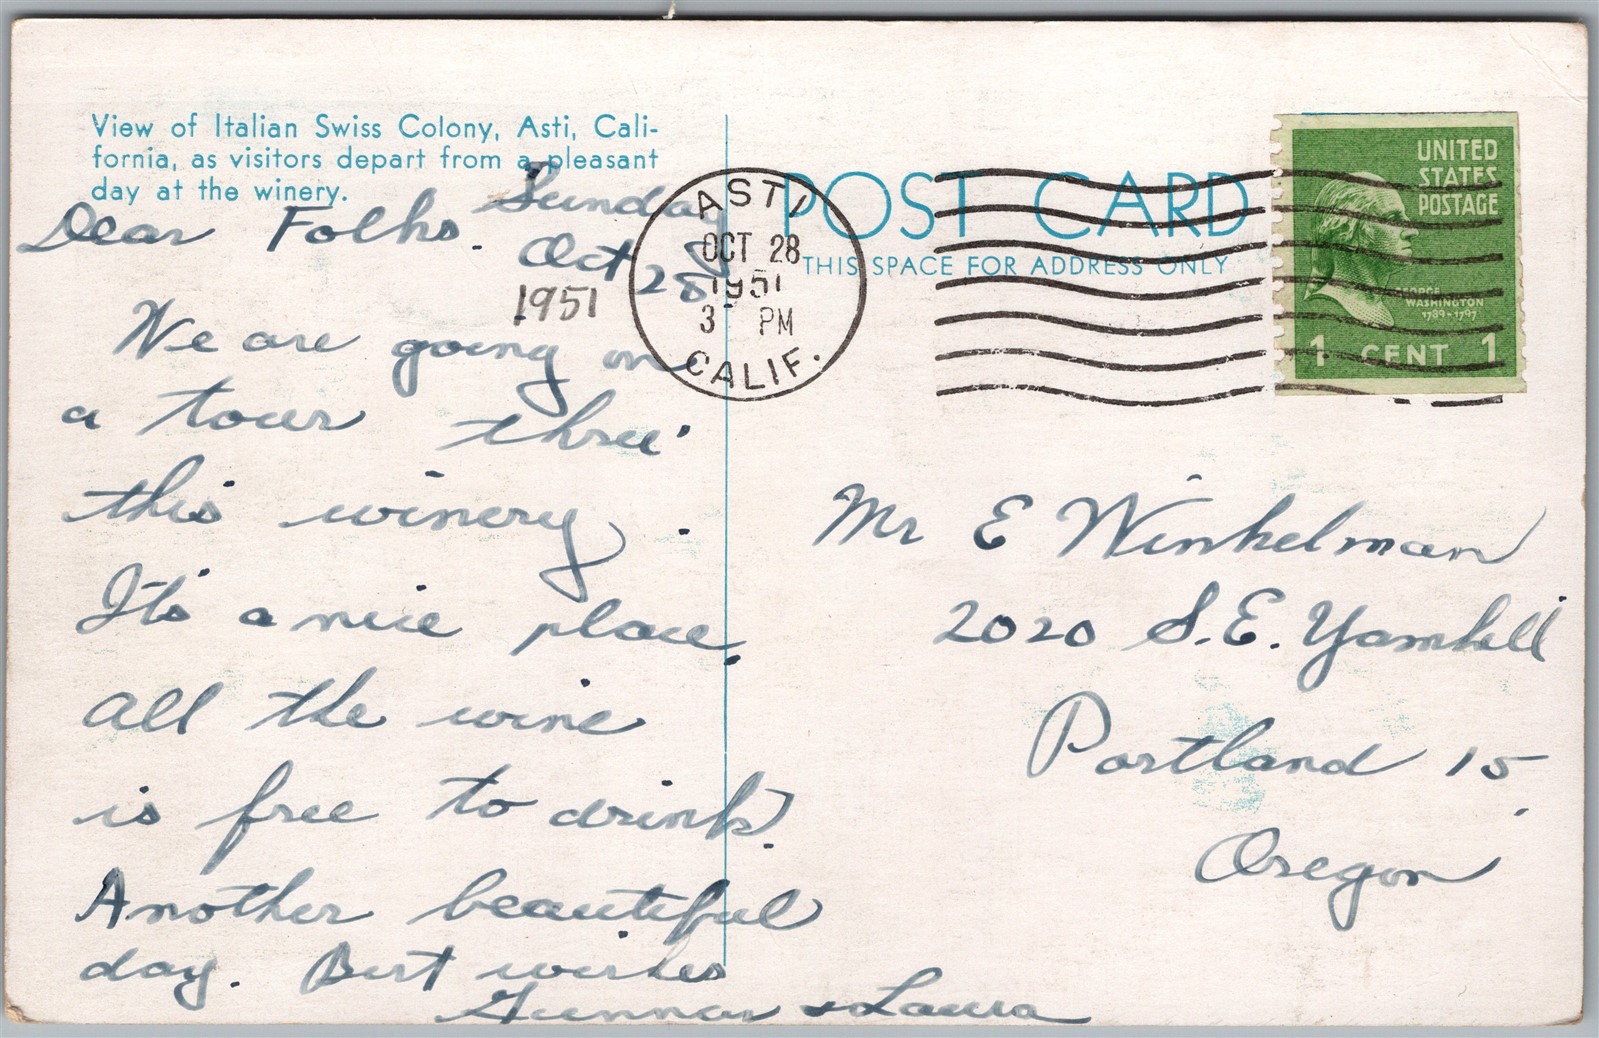 View of Italian Swiss Colony, Asti, Cali-
fornia, as visitors depart from a pleasant
day at the winery.
Sunday
Dear Folks.
Oct 28
1951
We are going on
a tour three
this winery.
It's a nice place.
all the wine
is free to drink.
Another beautiful
day. Best wishes
Gunnar & Laura
ASTI
OCT 28
1951
3 PM
CALIF.
POST CARD
THIS SPACE FOR ADDRESS ONLY
UNITED
STATES
POSTAGE
GEORGE
WASHINGTON
1789-1797
1 CENT 1
Mr E Winkelman
2020 S.E. Yamhill
Portland 15,
Oregon